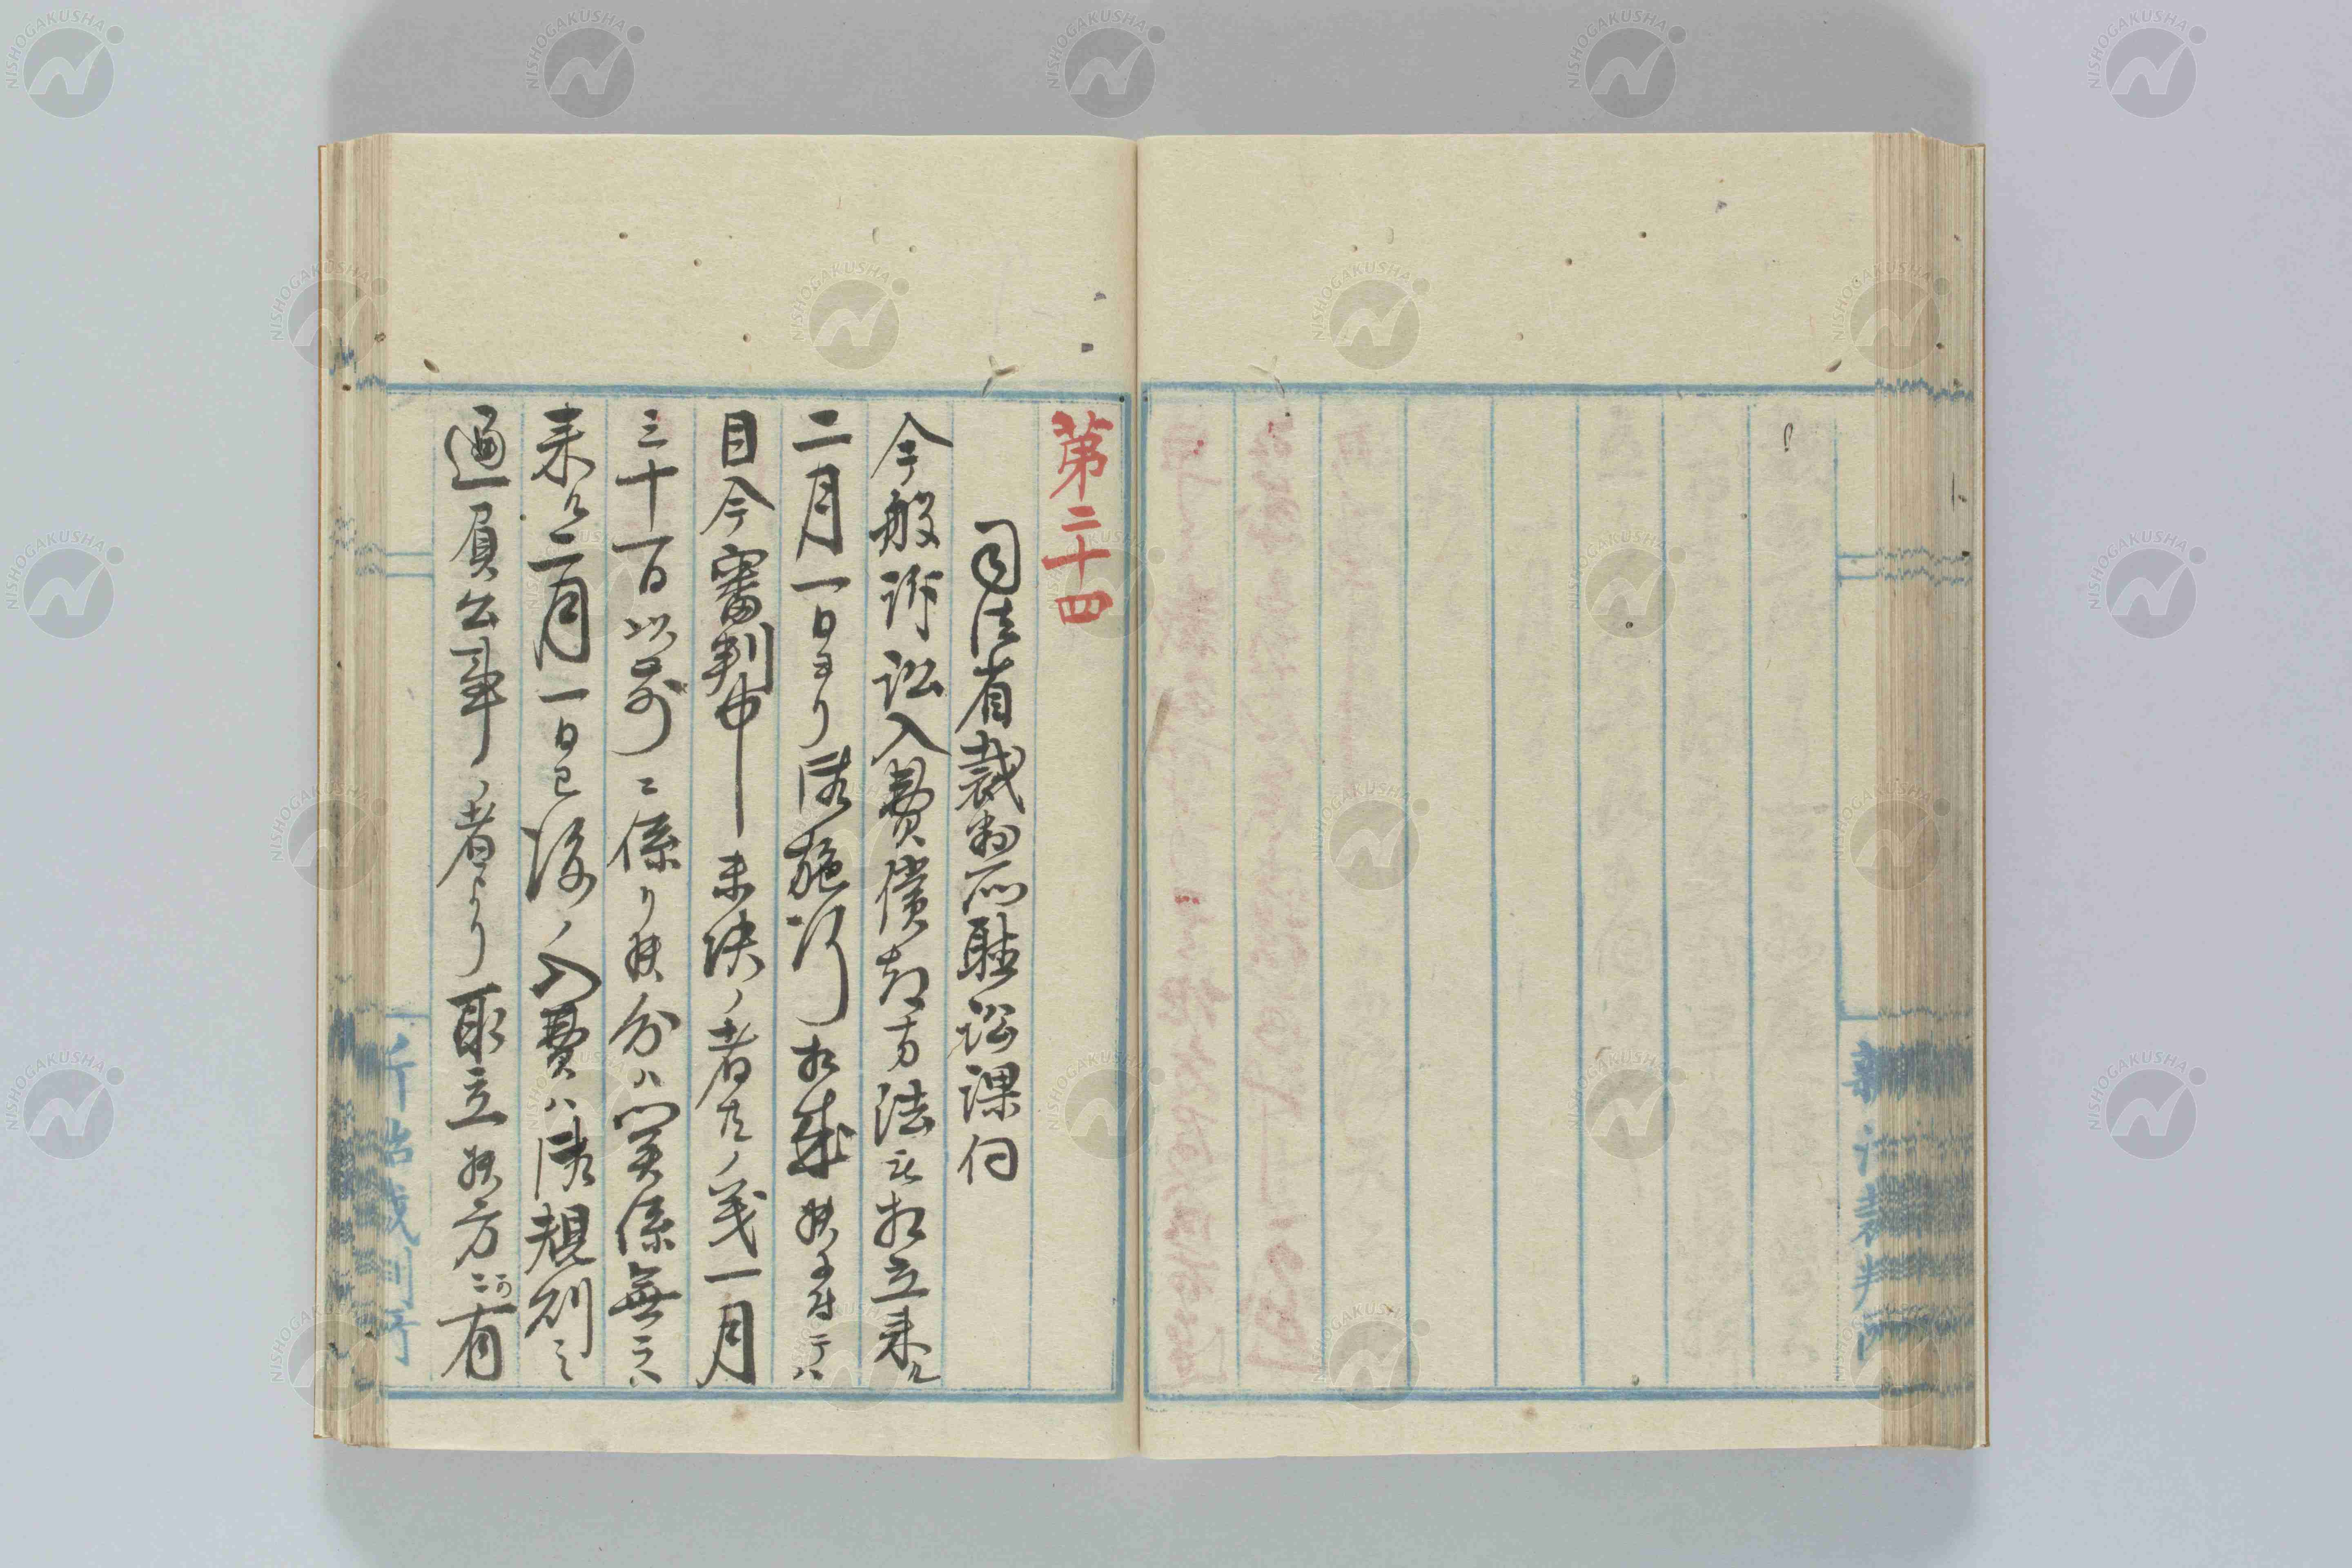 第二十四
司法省裁判所聴訟課伺
今般訴訟入費償却方法被相立来ル
二月一日ヨリ御施行相成候ニ付テハ
目今審判中未決ノ者共ノ義一月
三十一日以前ニ係リ候分ハ関係無之ハ
来ル二月一日已後ノ入費ハ御規則之
通負公事ノ者ヨリ取立候方ニ可有
NISHOGAKUSHA